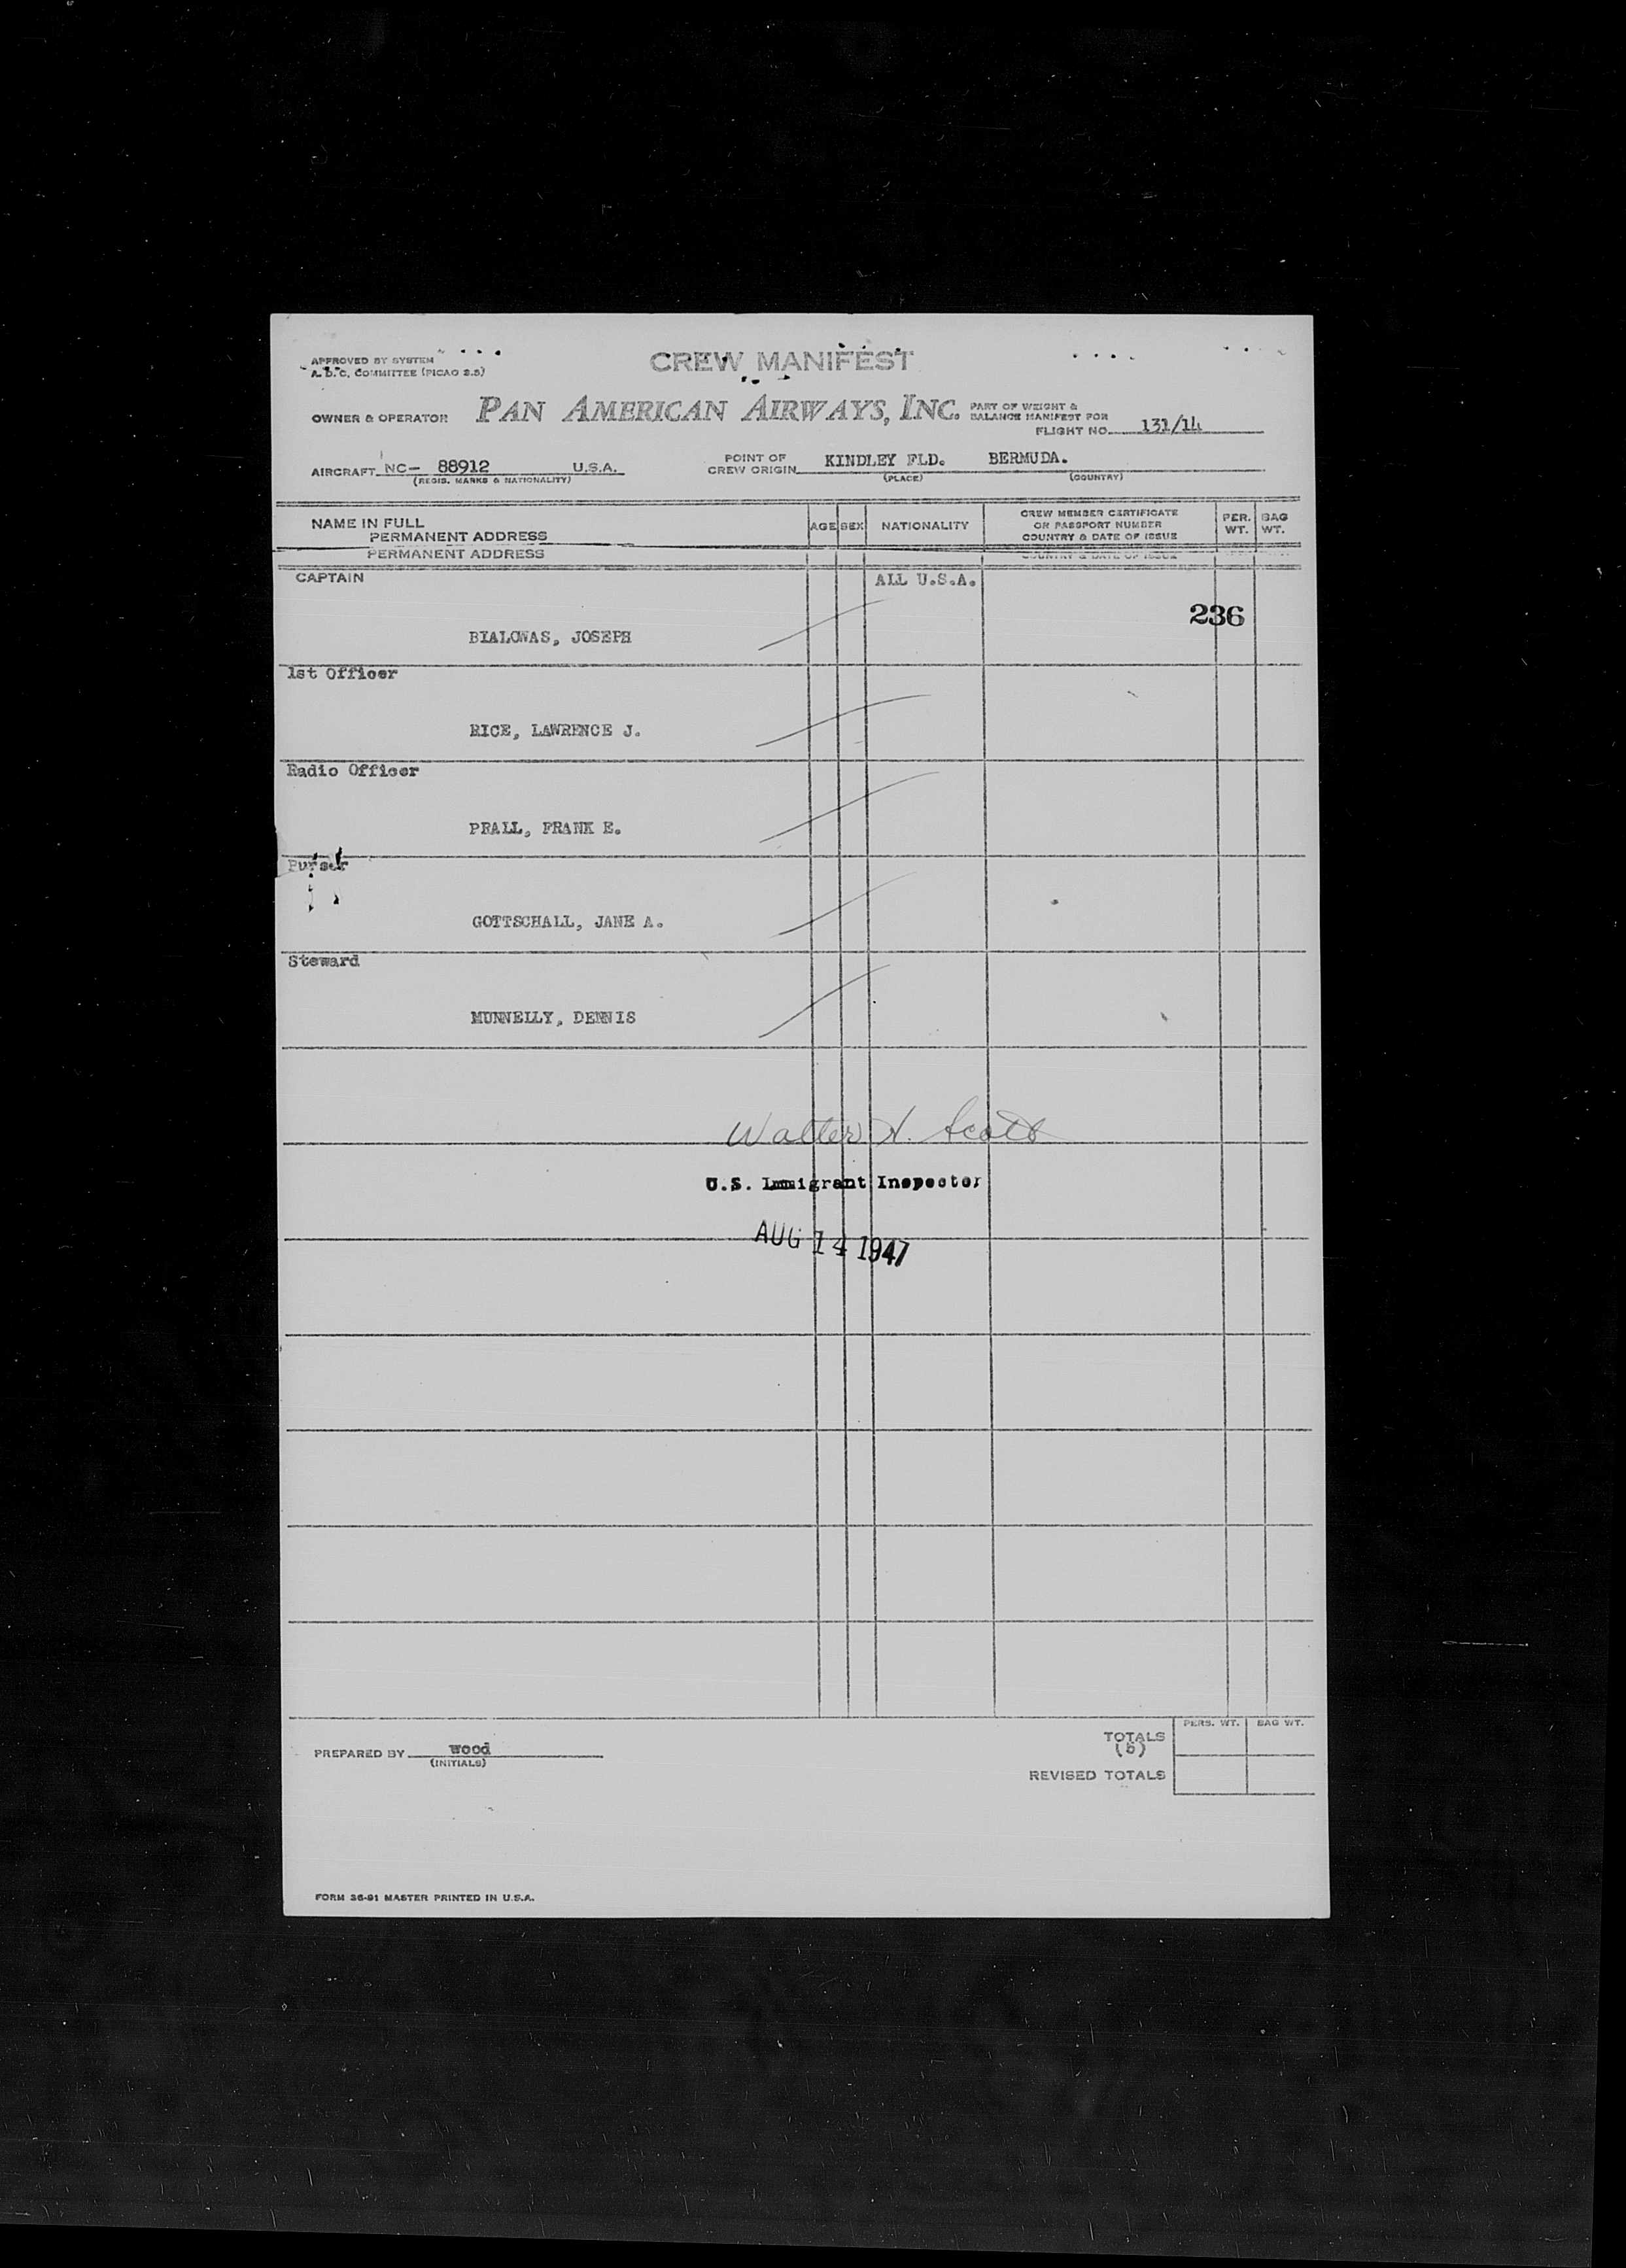 APPROVED BY SYSTEM
A.D.C. COMMITTEE (PICAO 2.5)
CREW MANIFEST
OWNER & OPERATOR PAN AMERICAN AIRWAYS, INC. PART OF WEIGHT &
BALANCE MANIFEST FOR
FLIGHT NO. 131/14
AIRCRAFT NC- 88912 U.S.A.
(REGIS. MARKS & NATIONALITY)
POINT OF
CREW ORIGIN KINDLEY FLD. BERMUDA.
(PLACE) (COUNTRY)
NAME IN FULL
PERMANENT ADDRESS
AGE SEX NATIONALITY
CREW MEMBER CERTIFICATE
OR PASSPORT NUMBER
COUNTRY & DATE OF ISSUE
PER. WT.
BAG WT.
PERMANENT ADDRESS
COUNTRY & DATE OF ISSUE
CAPTAIN ALL U.S.A.
236
BIALOWAS, JOSEPH
1st Officer
RICE, LAWRENCE J.
Radio Officer
PRALL, FRANK E.
Purser
GOTTSCHALL, JANE A.
Steward
MUNNELLY, DENNIS
Walter H. Scott
U.S. Immigrant Inspector
AUG 14 1947
PERS. WT. BAG WT.
TOTALS
(5)
PREPARED BY wood
(INITIALS)
REVISED TOTALS
FORM 36-91 MASTER PRINTED IN U.S.A.